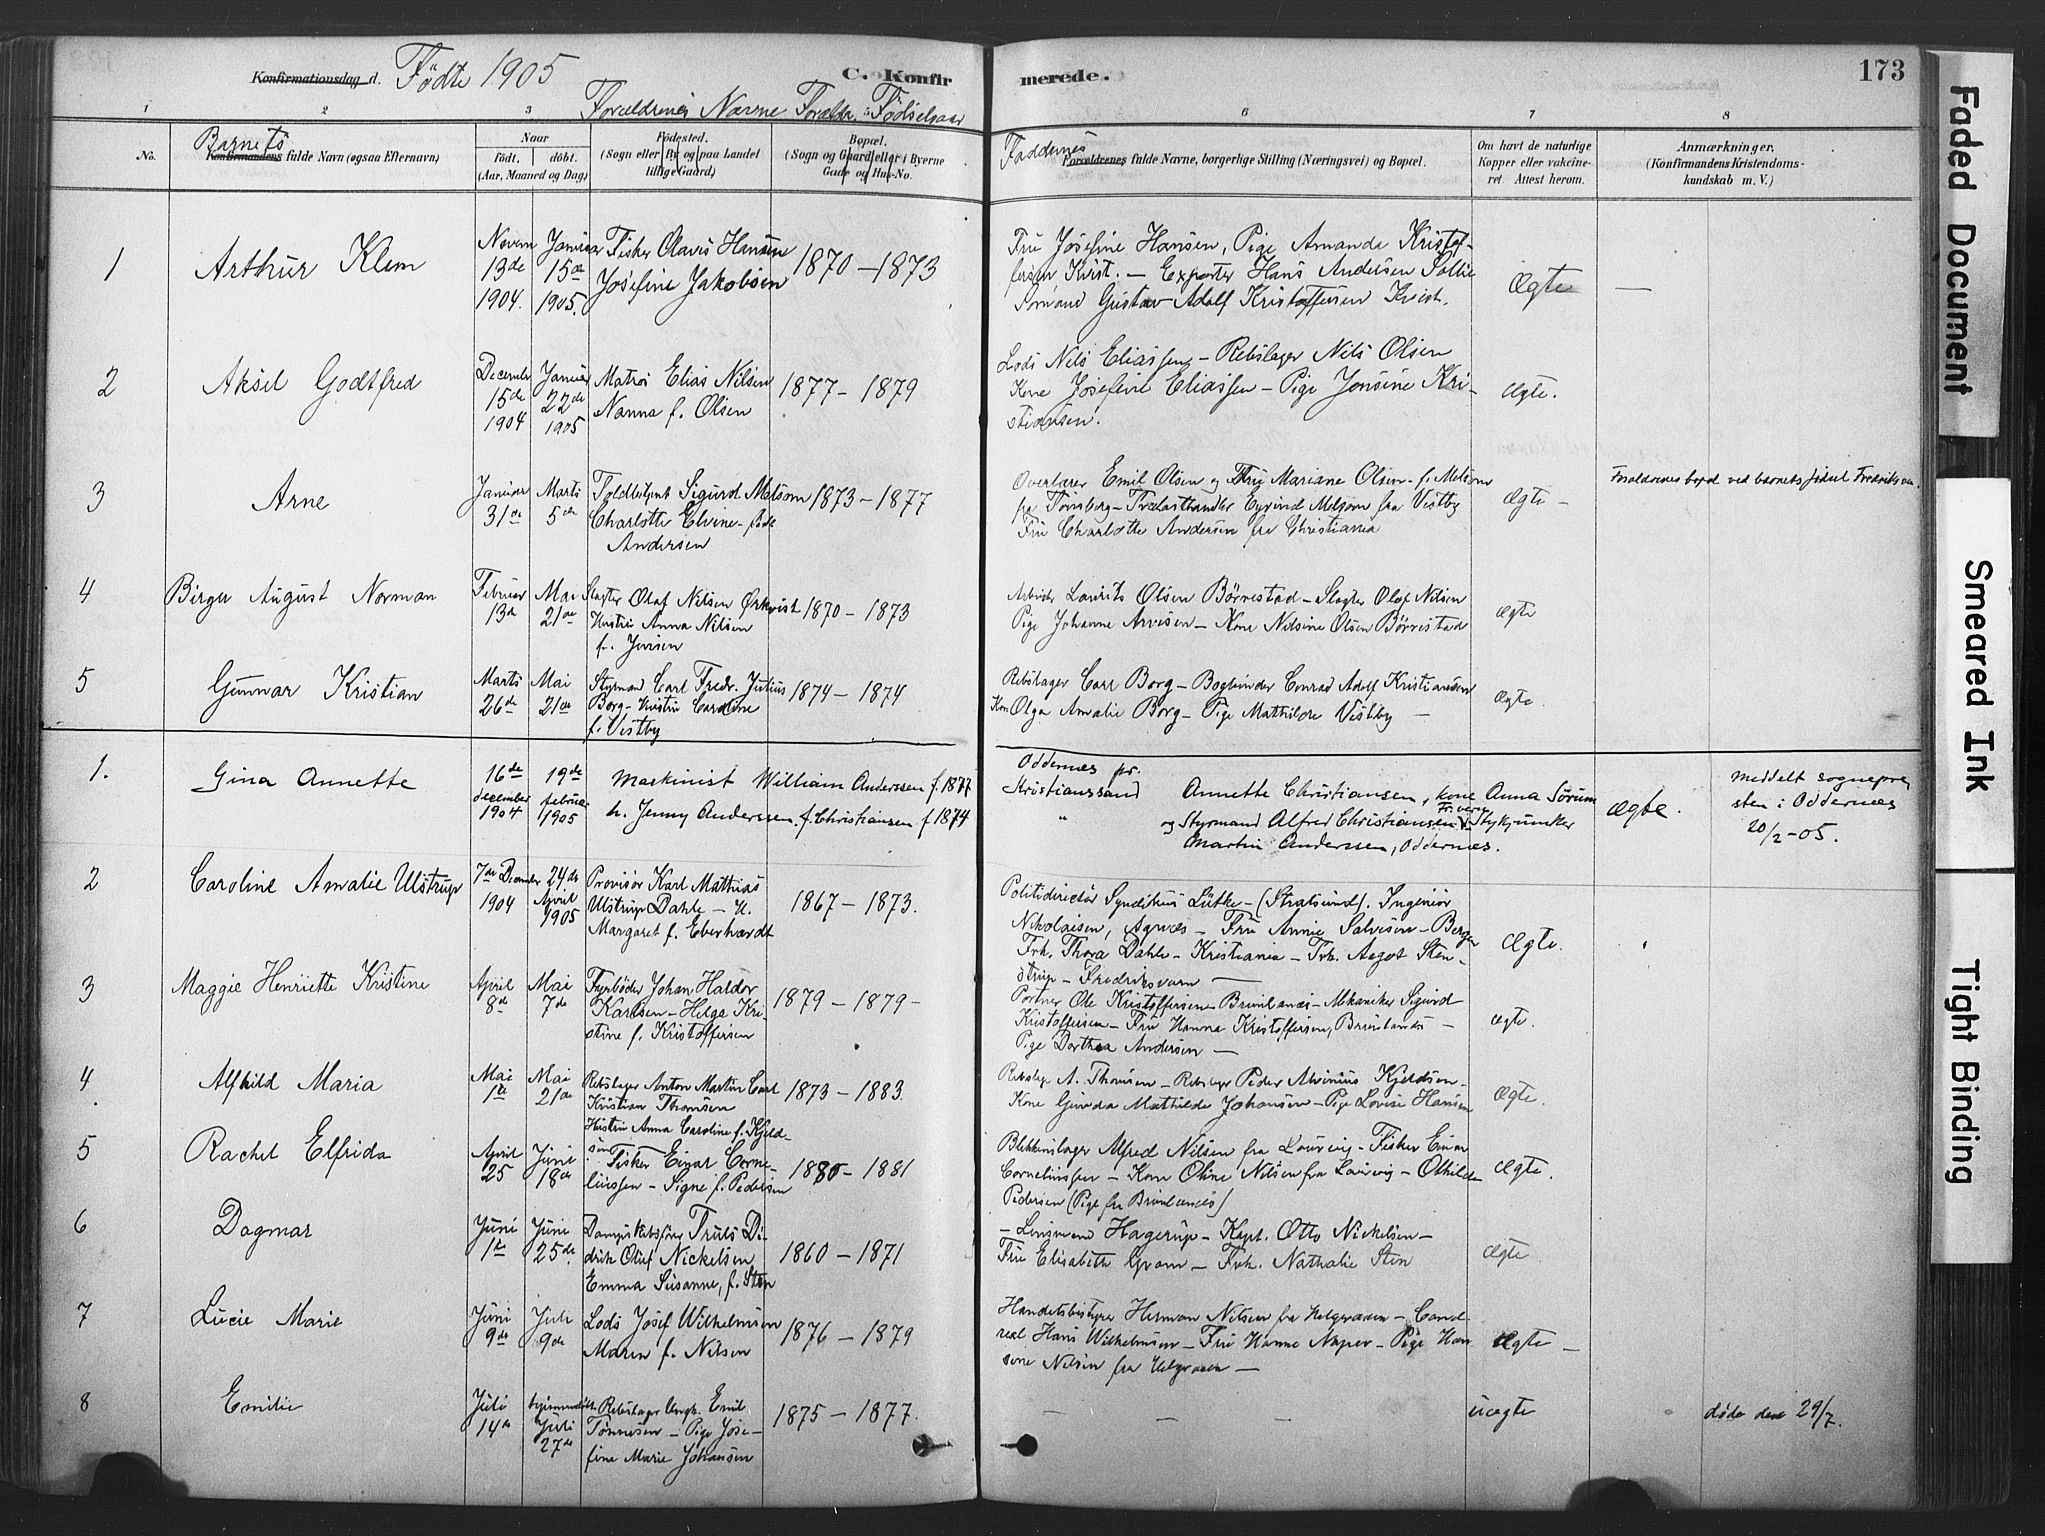 Konfirmationsdag d. Födte 1905
C. Konfir
merede.
173
1 2 3 5 6 7 8
Forældrenes Navne Foræld. Fødselsaar
No.
Barnets
Konfirmandens fulde Navn (ogsaa Efternavn)
Naar
født. døbt.
(Aar, Maaned og Dag)
Fødested.
(Sogn eller By og paa Landet
tillige Gaard)
Bopæl.
(Sogn og Gaard eller i Byerne
Gade og Hus-No.
Faddernes
Forældrenes fulde Navne, borgerlige Stilling (Næringsvei) og Bopæl.
Om havt de naturlige
Kopper eller vakcine-
ret. Attest herom.
Anmærkninger.
(Konfirmandens Kristendoms-
kundskab m. V.)
1
Arthur Klem
Novem
13de
1904.
Januar
15de
1905.
Fisker Olavis Hansen
Josefine Jakobsen
1870 - 1873
Fru Josefine Hansen, Pige Amanda Kristof-
fersen Kvist. - Hans Andersen Sollie
Formand Gustav Adolf Kristoffersen Kvist.
Ægte
2
Aksel Godtfred
December
15de
1904
Januar
22de
1905
Matros Elias Nilsen
Nanna f. Olsen
1877 - 1879
Lods Nils Eliassen - Rebslager Nils Olsen
Kone Josefine Eliassen - Pige Jonsine Kri-
stiansen.
Ægte.
3
Arne
Januar
31de
Marts
5de
Toldbetjent Sigurd Melsom
Charlotte Elvine - føde
Andersen
1873 - 1877
Overlærer Emil Olsen og Fru Mariane Olsen - f. Melsom
fra Tønsberg - Trælasthandler Eyvind Melsom fra Vestby
Fru Charlotte Andersen fra Christiania
Ægte -
Forældrenes bopel ved barnets fødsel Fredriksværn
4
Birger August Norman
Februar
13de
Mai
21de
Slagter Olaf Nilsen Ørkvist
Hustru Anna Nilsen
f. Jonsen
1870 - 1873
Arbeider Laurits Olsen Børrestad - Slagter Olaf Nilsen
Pige Johanne Arvesen - Kone Nilsine Olsen Børrestad
Ægte
5
Gunnar Kristian
Marts
26de
Mai
21de
Styrmand Carl Fredr. Julius
Borg - Hustru Caroline
f. Vestby
1874 - 1874
Rebslager Carl Borg - Bogbinder Conrad Adolf Kristiansen
Kone Olga Amalie Borg - Pige Mathilde Vestby -
Ægte.
1.
Gina Annette
16de
december
1904
19de
februar
1905
Maskinist William Anderssen f. 1877
h. Jenny Anderssen f. Christiansen f 1874
Oddernes pr.
Kristianssand
"
Annette Christiansen, kone Anna Sörum
og Styrmand Alfred Christiansen Fr.værn Stykjunker
Martin Anderssen, Oddernes.
Ægte.
Meddelt sognepre
sten i Oddernes
20/2-05.
2
Caroline Amalie Ulstrup
7de December
1904
24de
April
1905
Provisor Karl Mathias
Ulstrup Dahle - H.
Margaret f. Eberhardt
1867 - 1873.
Politidirector Syndikus Lütke - (Stralsund). Ingeniør
Nikolaisen, Agnæs - Fru Annie Salvesen - Bergen
Frk. Thora Dahle - Kristiania - Frk. Aagot Sten-
strup - Fredriksværn -
Ægte.
3
Maggie Henriette Kristine
April
8de
Mai
7de
Fyrbøder Johan Haldor
Karlsen - Helga Kri-
stine f. Kristoffersen
1879 - 1879 -
Portner Ole Kristoffersen Brunlanæs - Mekaniker Sigurd
Kristoffersen - Fru Hanna Kristoffersen, Brunlanæs -
Pige Dorthea Andersen -
Ægte.
4.
Alfhild Maria
Mai
1de
Mai
21de
Rebslager Anton Martin Carl
Kristian Thomsen
Hustru Anna Caroline f. Kjeld-
sen
1873 - 1883.
Rebslager A. Thomsen - Rebslager Peder Alvinius Kjeldsen -
Kone Gunda Mathilde Johansen - Pige Lovise Hansen
Ægte.
5
Rachel Elfrida
April
25
Juni
18de
Fisker Einar Corne-
liussen - Signe f. Pedersen
1880 - 1881
Blikkenslager Alfred Nilsen fra Laurvig - Fisker Einar
Corneliussen - Kone Oline Nilsen fra Laurvig - Othilde
Pedersen (Pige fra Brunlanæs)
Ægte.
6
Dagmar
Juni
1de
Juni
25de.
Dampskibsfører Truls Di-
drik Olaf Nickelsen
Emma Susanne, f. Sten
1860 - 1871
- Lensmand Hagerup - Kapt. Otto Nickelsen -
Fru Elisabeth Gram - Frk. Nathalie Sten
Ægte
7
Lucie Marie
Juni
9de
Juli
9de
Lods Josef Wilhelmsen
Maren f. Nilsen
1876 - 1879
Handelsbestyrer Herman Nilsen fra Helgeraaen - Cand.
real Hans Wilhelmsen - Fru Hanne Naper - Pige Han
sine Nilsen fra Helgeraaen -
Ægte -
8
Emilie
Juli
14de
hjemmedøbt
Juli
27de
Rebslager Ungk. Emil
Tønnesen - Pige Jose-
fine Marie Johansen
1875 - 1877.
- - -
uægte
døde den 29/7.
Faded Document
Smeared Ink
Tight Binding